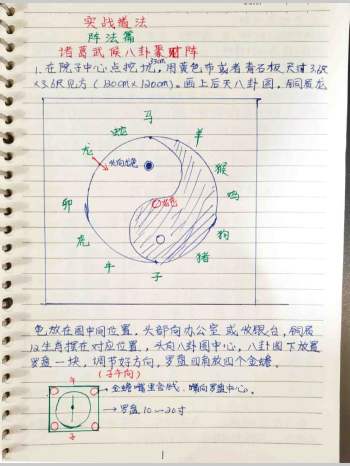 实战道法
阵法篇
诸葛武候八卦聚财阵
1.在院子中心点挖坑,用黄色布或者青石板尺寸3.6尺
×3.6尺见方(120cm×120cm)。画上后天八卦图,铜质龙
马
蛇
羊
龙
头向
猴
卯
鸡
虎
狗
牛
猪
子
龟放在图中间位置,头部向办公室或收银台,铜质
12生肖摆在对应位置,头向八卦图中心,八卦图下放置
罗盘一块,调节好方向,罗盘四角放四个金蟾。
(子午向)
午
金蟾嘴里含钱,嘴向罗盘中心。
罗盘10一20寸
子
1